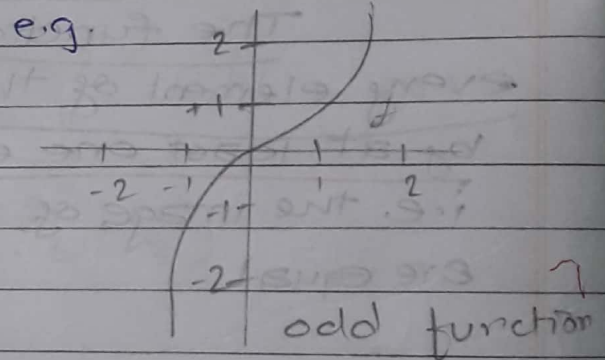 e.g.
2
+1
-2 -1 1 2
-1
-2
odd function